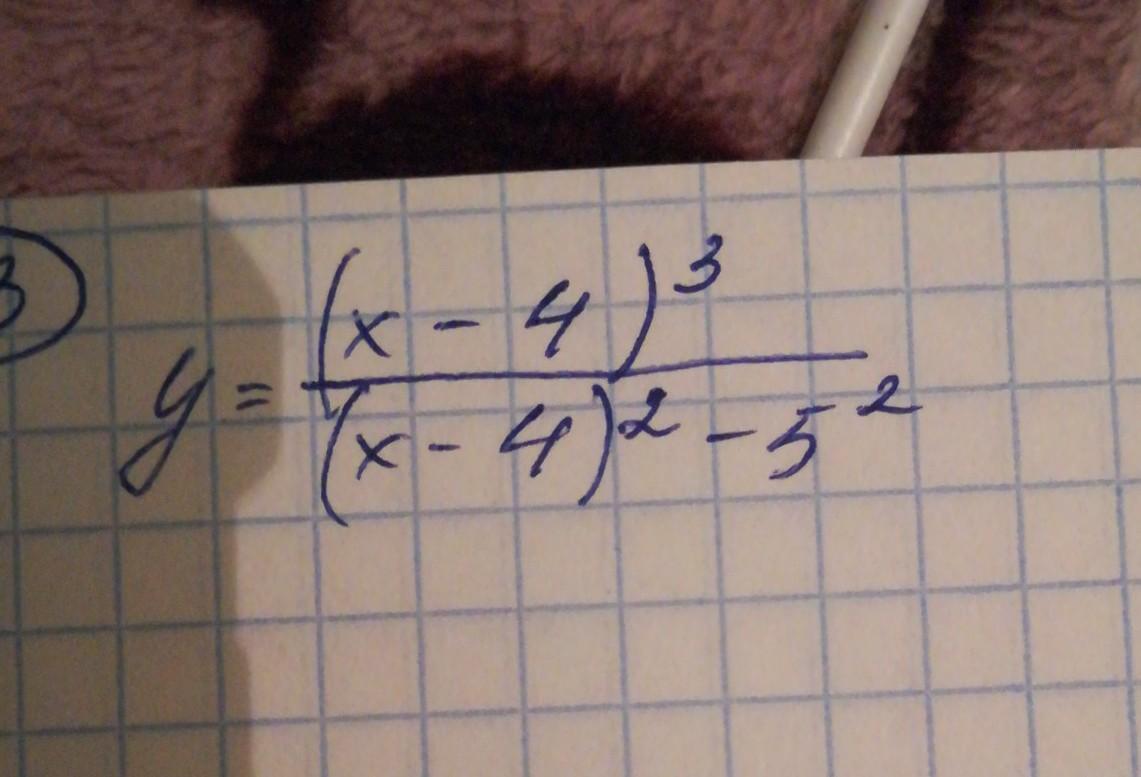 3) y = (x - 4)^3 / ((x - 4)^2 - 5^2)